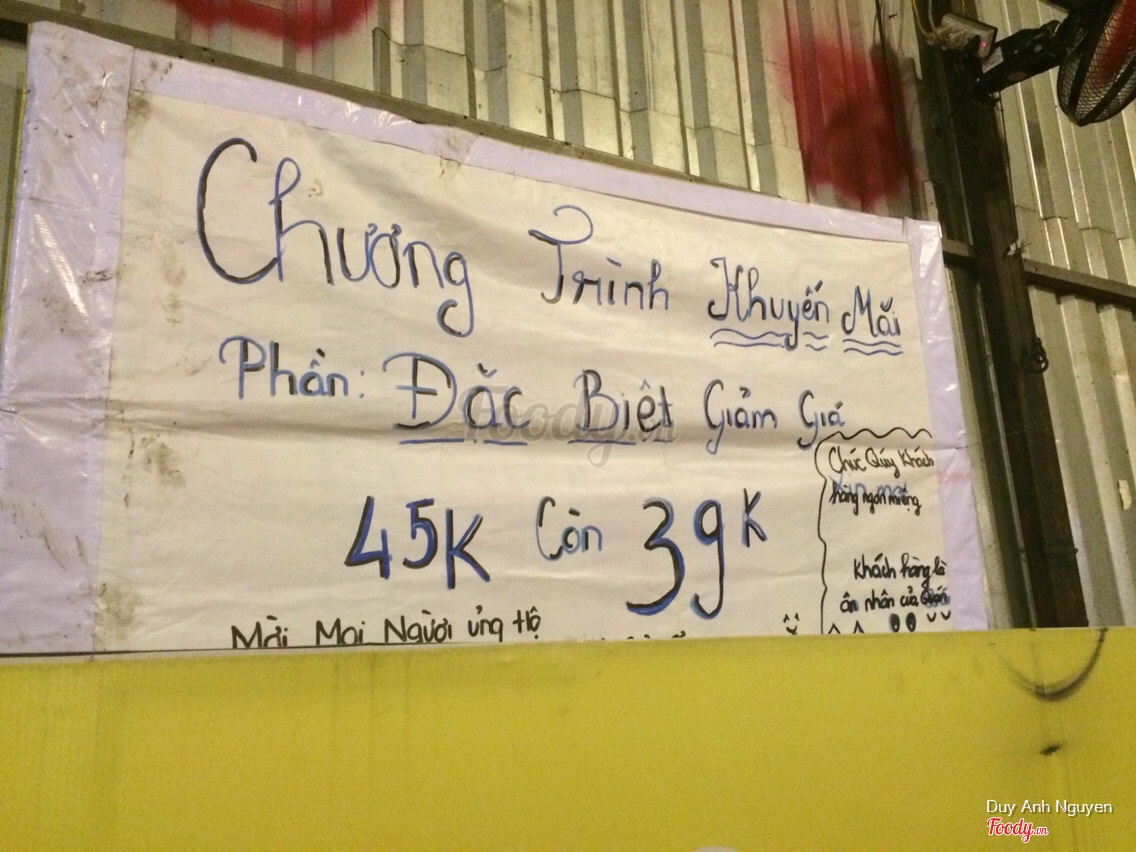 Chương Trình Khuyến Mãi
Phần: Đặc Biệt Giảm Giá
45K Còn 39K
Chúc Qúy Khách
hàng ngon miệng
Khách hàng là
ân nhân của Quán
Mời Mọi Người ủng Hộ
Foody.vn
Duy Anh Nguyen
Foody.vn